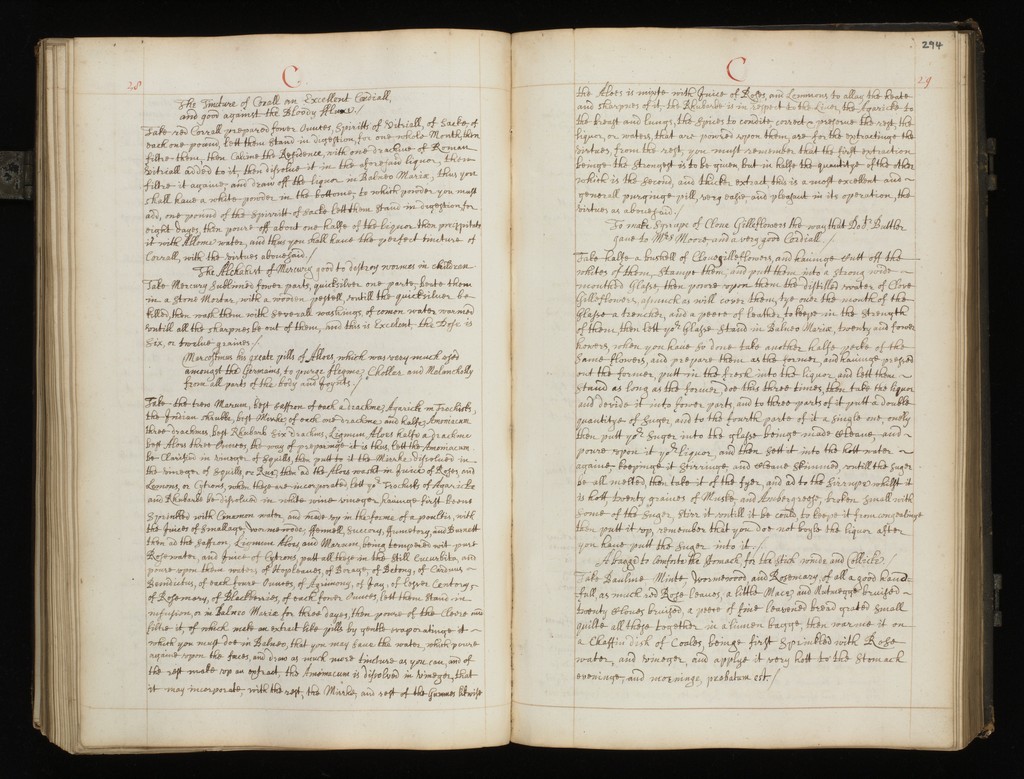 28
C
The Tincture of Corall an Excellent Cordiall,
and good against the Bloody fluxe /
Take red Corrall prepared fower Ounces, Spiritts of Vitriall, of Sacke, of
each one pound, lett them stand in digestion, for one whole Month, then
filtre them, then Calcine the Residence, with one drachme of Roman
vitriall added to it, then dissolve it in the aforesaid liquor, then
filtre it againe, and draw off the liquor in Balneo Mariæ, thus you
shall have a white powder in the bottome, to which powder you must
add, one pound of the Spirritt of Sacke lett them stand in digestion for
eight dayes, then poure off about one halfe of the liquor then precipitate
it with Allome water, and thus you shall have the perfect tincture of
Corrall, with the virtues abovesaid /
The Alckahist of Mercury good to destroy wormes in children
Take Mercury Sublimed fower parts, quicksilver one parte, beate them
in a Stone Mortar, with a wooden pestell, untill the quicksilver be
killed, then wash them with severall washings, of comon water warmed
untill all the sharpnes be out of them, and this is Excelent, the Dose is
Six, or twelve graines /
his greate pills of Alloes, which was very much used
amongst the Germans, to purge flegme, Choller and Melancholly
from all parts of the body and Joynts /
Take the tree Marum, best saffron of each a drachme, Agarick in Trochists,
the Indian best Mirrhe, of each one drachme and halfe, Amoniacum
three drachmes best Rhubarb six drachms, Lignum Aloes halfe a drachme
best Aloes three Ounces, the way of prepareinge it is thus, lett the Amoniacum
be Clarified in vineger of Squills, then putt to it the Mirrhe dissolved in
the vineger of Squills or Rue, then ad the Aloes washt in Juice of Roses and
Lemons, or Cytrons, when these are incorporated, lett ye Trochists of Agaricke
and Rhubarbe be dissolved in white wine vineger haveinge first beene
Sprinkled with Cinamon water, and made up in the forme of a poultis, with
the Juices of Smallage, wormewoode, ffennell, Succory, ffumetory, and Burnett
then ad the Saffron, Lignum Aloes and Marum, being tempered with pure
Rosewater, and Juice of Cytrons, putt all these in the Still Cucurbitt, and
poure upon them waters of Hopleaves, of Borage, of Betony, of Carduus
Benedictus, of each foure Ounces, of Agrimony, of Jvy, of lesser Centory,
of Rosemary, of Blackberries, of each fower Ounces, lett them stand in
infusion, or in Balneo Mariæ for three dayes, then powre of the Cleire and
filtre it, of which make an extract like pills by gentle evaporatinge it
which you must doe in Balneo, that you may save the water, which poure
againe upon the faces, and draw as much more tincture as you can, and of
the rest make up an extract, the Amoniacum is dissolved in vineger, that
it may incorporate, with the rest, the Mirrhe, and rest of the Gummes likewise
294
29
C
the Aloes is mixte with Juice of Roses, and Lemmons to allay the heate
and sharpnes of it, the Rhubarbe is in respect to the Liver, the Agaricke to
the breast and lungs, the Spices to condite, correct & preserve the rest, the
liquor, or waters, that are powred upon them, are for the extractinge the
virtues, from the rest, you must remember that the first extraction
beinge the strongest is to be given but in halfe the quantitye of the other
which is the second, and thicker extract, this is a most excellent and
generall purginge pill, very easie and pleasant in its operation, the
virtues as abovesaid /
To make Syrrupe of Clove Gilleflowers the way that Doctr Buttler
gave to Mrs Moore and a very good Cordiall /
Take halfe a bushell of Clovegilleflowers, and haveinge Cutt off the
whites of them, stampe them, and putt them into a strong wide
mouthed Glasse, then powre upon them the distilled water of Clove
Gilleflowers, asmuch as will cover them, tye over the mouth of the
Glasse a trencher, and a peece of leather to keepe in the strength
of them then lett yor Glasse stand in Balneo Mariæ, twenty and fower
howers, when you have so done take another halfe pecke of the
same flowers, and prepare them as the former, and haveinge pressed
out the former, putt in the fresh into the liquor, and lett them
stand as long as the former, doe this three times, then take the liquor
and devide it into fower parts, and to three parts of it putt a double
quantitye of Suger, and to the fourth parte of it a single one, onely
then putt yor Suger into the glasse beinge made Cleane, and
powre upon it yor liquor, and then sett it into the hott water
againe, keepinge it stirringe, and Cleane skimmed, untill the Suger
be all melted, then take it of the fyer, and ad to the Sirrupe whilst it
is hott twenty graines of Muske, and Ambergreese, broken small with
some of the Suger, stirr it untill it be could to keepe it from congealinge
then putt it up, remember that you doe not boyle the liquor after
you have putt the Suger into it /
A bagge to comforte the Stomach for the stich winde and Collicke /
Take Pauline Minte, wormewood, and Rosemary, of all a good hand-
full, as much red Rose leaves, a little Mace, and Nutmegge bruised
twenty Cloves bruised, a peece of fine leavened bread grated small
quilte all these together in a linnen bagge, then warme it on
a Chaffin dish of Coales, beinge first Sprinkled with Rose
water, and vineger, and applye it very hott to the Stomach
eveninge, and morninge, probatum est /